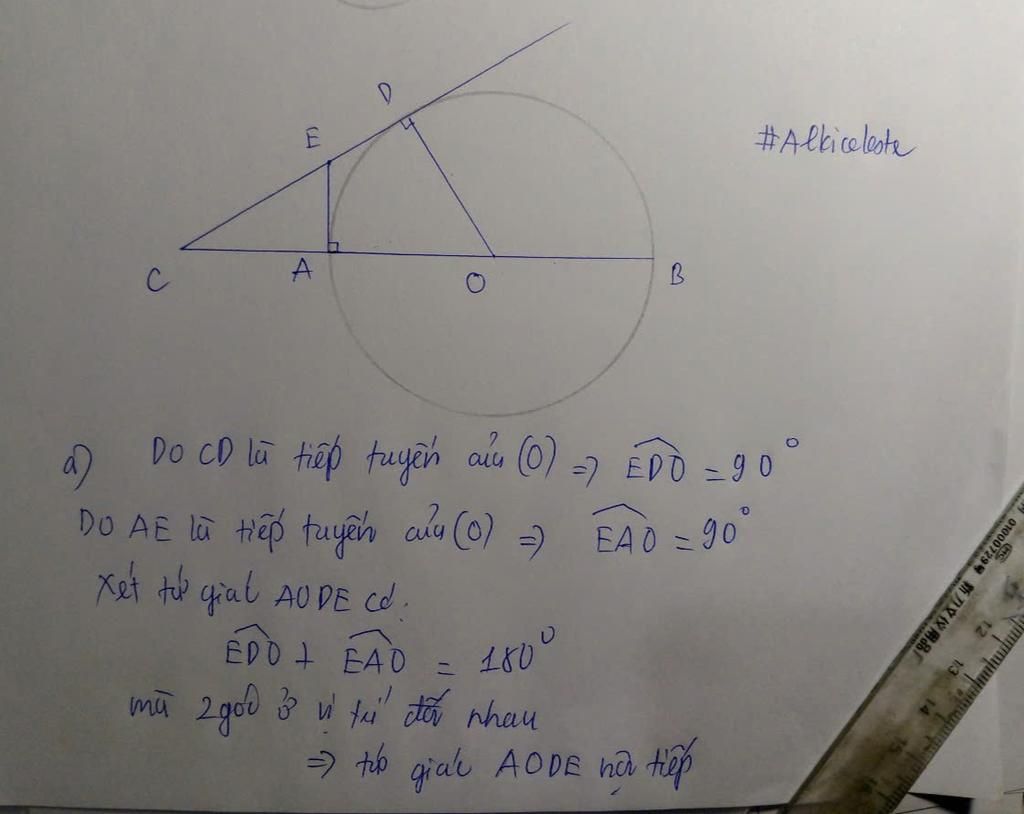 D
E
#Alkiceleste
C
A
O
B
a) Do CD là tiếp tuyến của (O) => EDO = 90°
Do AE là tiếp tuyến của (O) => EAO = 90°
Xét tứ giác AODE có:
EDO + EAO = 180°
mà 2 góc ở vị trí đối nhau
=> tứ giác AODE nội tiếp
010007294
12
13
14
15
16